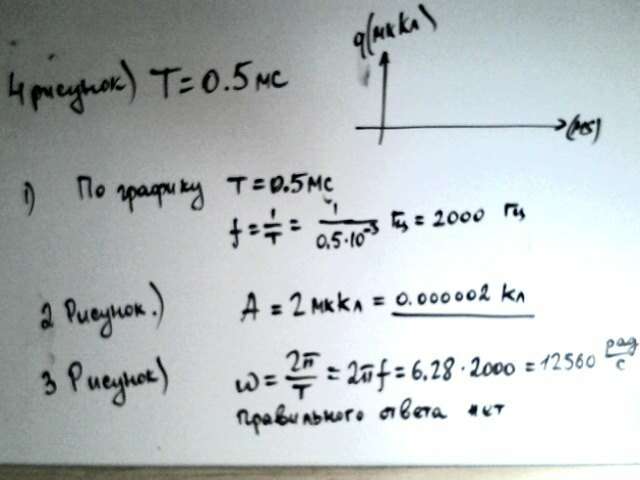 4 рисунок) T = 0.5 мс
q(мккл)
(ms)
1) По графику T = 0.5 мс
f = 1/T = 1/0.5·10⁻³ Гц = 2000 Гц
2 Рисунок.) A = 2 мккл = 0.000002 кл
3 Рисунок) ω = 2π/T = 2πf = 6.28 · 2000 = 12560 рад/с
правильного ответа нет